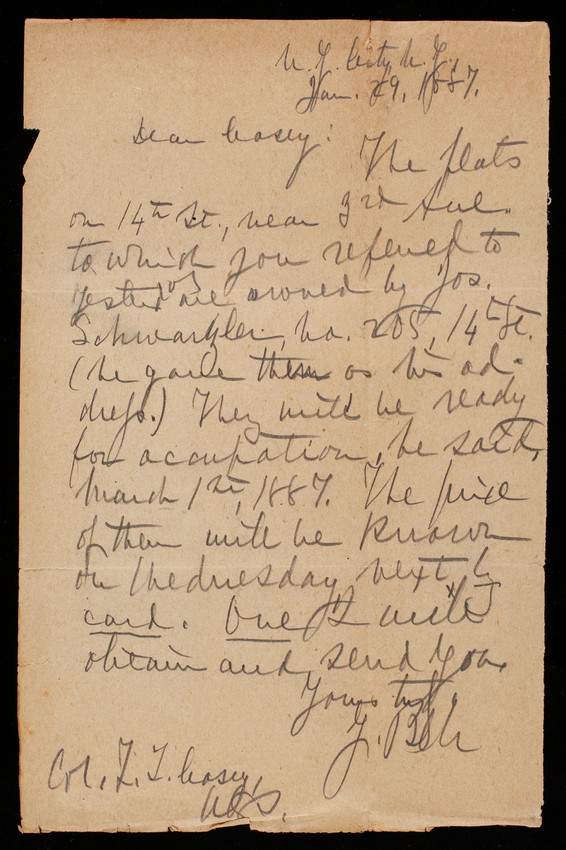 N. Y. City N. Y.,
Jan. 29, 1887.
Dear Casey:
The flats
on 14th St., near 3rd Ave.
to which you referred to
yester are owned by Jos.
No. 205, 14th St.
(he gave them as his ad-
dress.) They will be ready
for occupation, he said,
March 1st, 1887. The price
of them will be known
on Wednesday next by
card. One I will
obtain and send you.
Yours
Col. T. L. Casey,